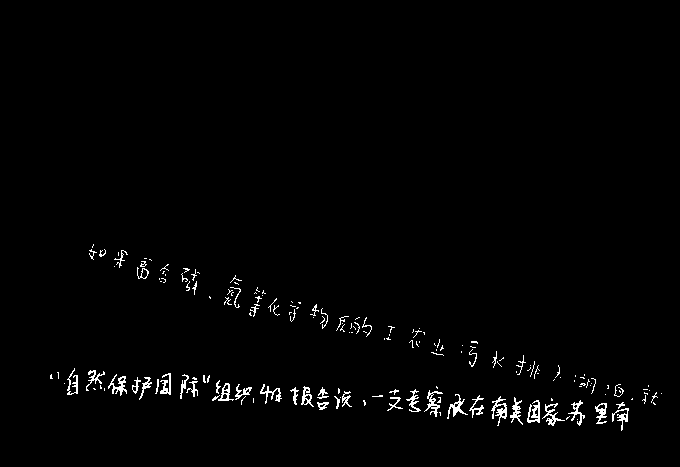 如果富含磷、氮等化学物质的工农业污水排入湖泊,就
“自然保护国际”组织4日报告说,一支考察队在南美国家苏里南